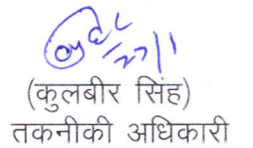 27/1
(कुलबीर सिंह)
तकनीकी अधिकारी